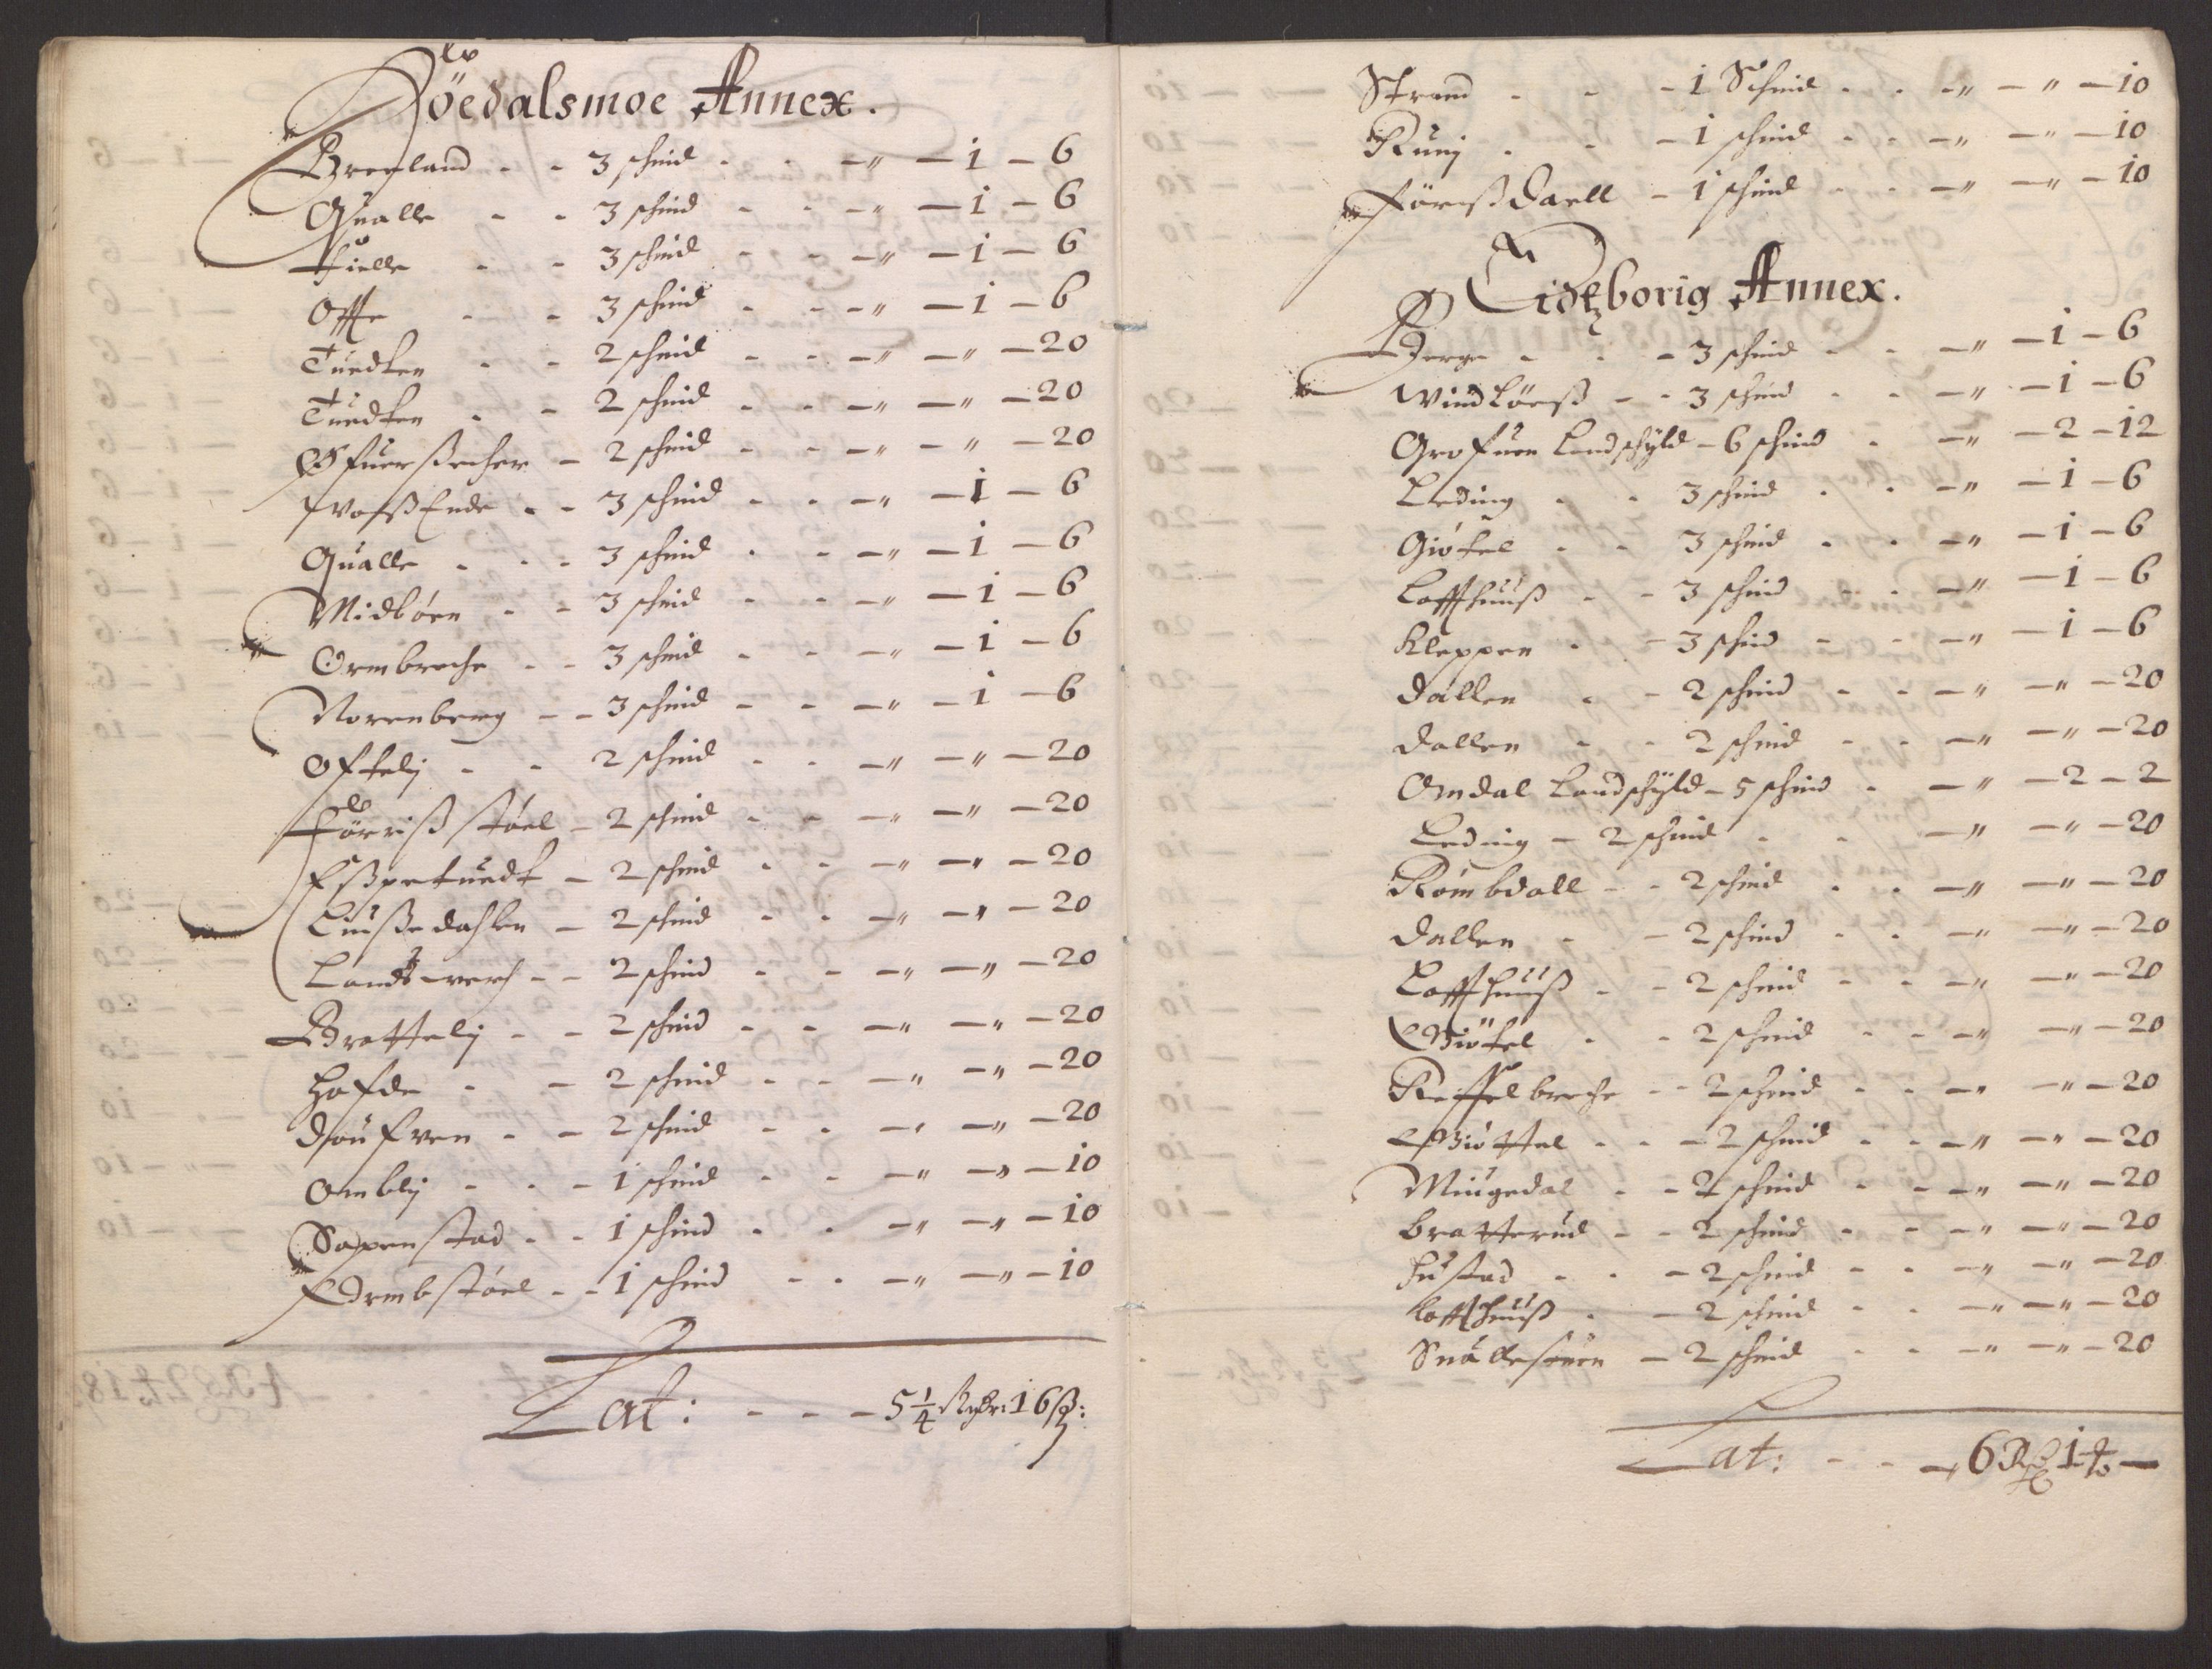 Höedalsmoe Annex.
Bregland - - 3 schind - - -" - 1 - 6
Qualle - - 3 schind - - -" - 1 - 6
Fielle - - 3 schind - - -" - 1 - 6
Offte - - 3 schind - - -" - 1 - 6
Tuedten - - 2 schind - - -" -" - 20
Tuedten - - 2 schind - - -" -" - 20
- 2 schind - - -" -" - 20
- - 3 schind - - -" - 1 - 6
Qualle - - - 3 schind - - -" - 1 - 6
Midböen - - 3 schind - - -" - 1 - 6
Ormbreche - - 3 schind - - -" - 1 - 6
Norenberg - - 3 schind - - -" - 1 - 6
Oftelj - - 2 schind - - -" -" - 20
Förrißstöel - 2 schind - - -" -" - 20
Eßpetuedt - 2 schind - - -" -" - 20
Liußedahlen - 2 schind - - -" -" - 20
Landtwerch - - 2 schind - - -" -" - 20
Brattelj - - 2 schind - - -" -" - 20
Hofde - - 2 schind - - -" -" - 20
Diufven - - 2 schind - - -" -" - 20
Omblj - - - 1 schind - - -" -" - 10
Sapenstad - - 1 schind - - -" -" - 10
Ormbstöel - - 1 schind - - -" -" - 10
Lat: - - - 5 1/4 Rixdr: 16 ß:
Strand - - - 1 Schind - - -" -" - 10
Runj - - - 1 schind - - -" -" - 10
Förißdaell - 1 schind - - -" -" - 10
Eidtzborig Annex.
Berge - - - 3 schind - - -" - 1 - 6
Windlöeß - - 3 schind - - -" - 1 - 6
Grofuen Landschyld - 6 schind - -" - 2 - 12
Leding - - 3 schind - - -" - 1 - 6
Giötel - - 3 schind - - -" - 1 - 6
Loffthuuß - - 3 schind - - -" - 1 - 6
Kleppen - - 3 schind - - -" - 1 - 6
Dallen - - 2 schind - - -" -" - 20
Dallen - - 2 schind - - -" -" - 20
Omdal Landschyld - 5 schind - -" - 2 - 2
Leding - 2 schind - - -" -" - 20
Römbdall - - 2 schind - - -" -" - 20
Dallen - - 2 schind - - -" -" - 20
Loffthuuß - - 2 schind - - -" -" - 20
Giötel - - 2 schind - - -" -" - 20
Röffelbreche - - 2 schind - - -" -" - 20
Giöttel - - - 2 schind - - -" -" - 20
Miugedal - - 2 schind - - -" -" - 20
Bratterud - - 2 schind - - -" -" - 20
Hustad - - - 2 schind - - -" -" - 20
Loffthuuß - - 2 schind - - -" -" - 20
- 2 schind - - -" -" - 20
Lat: - - - 6 Rdr 1 ort -